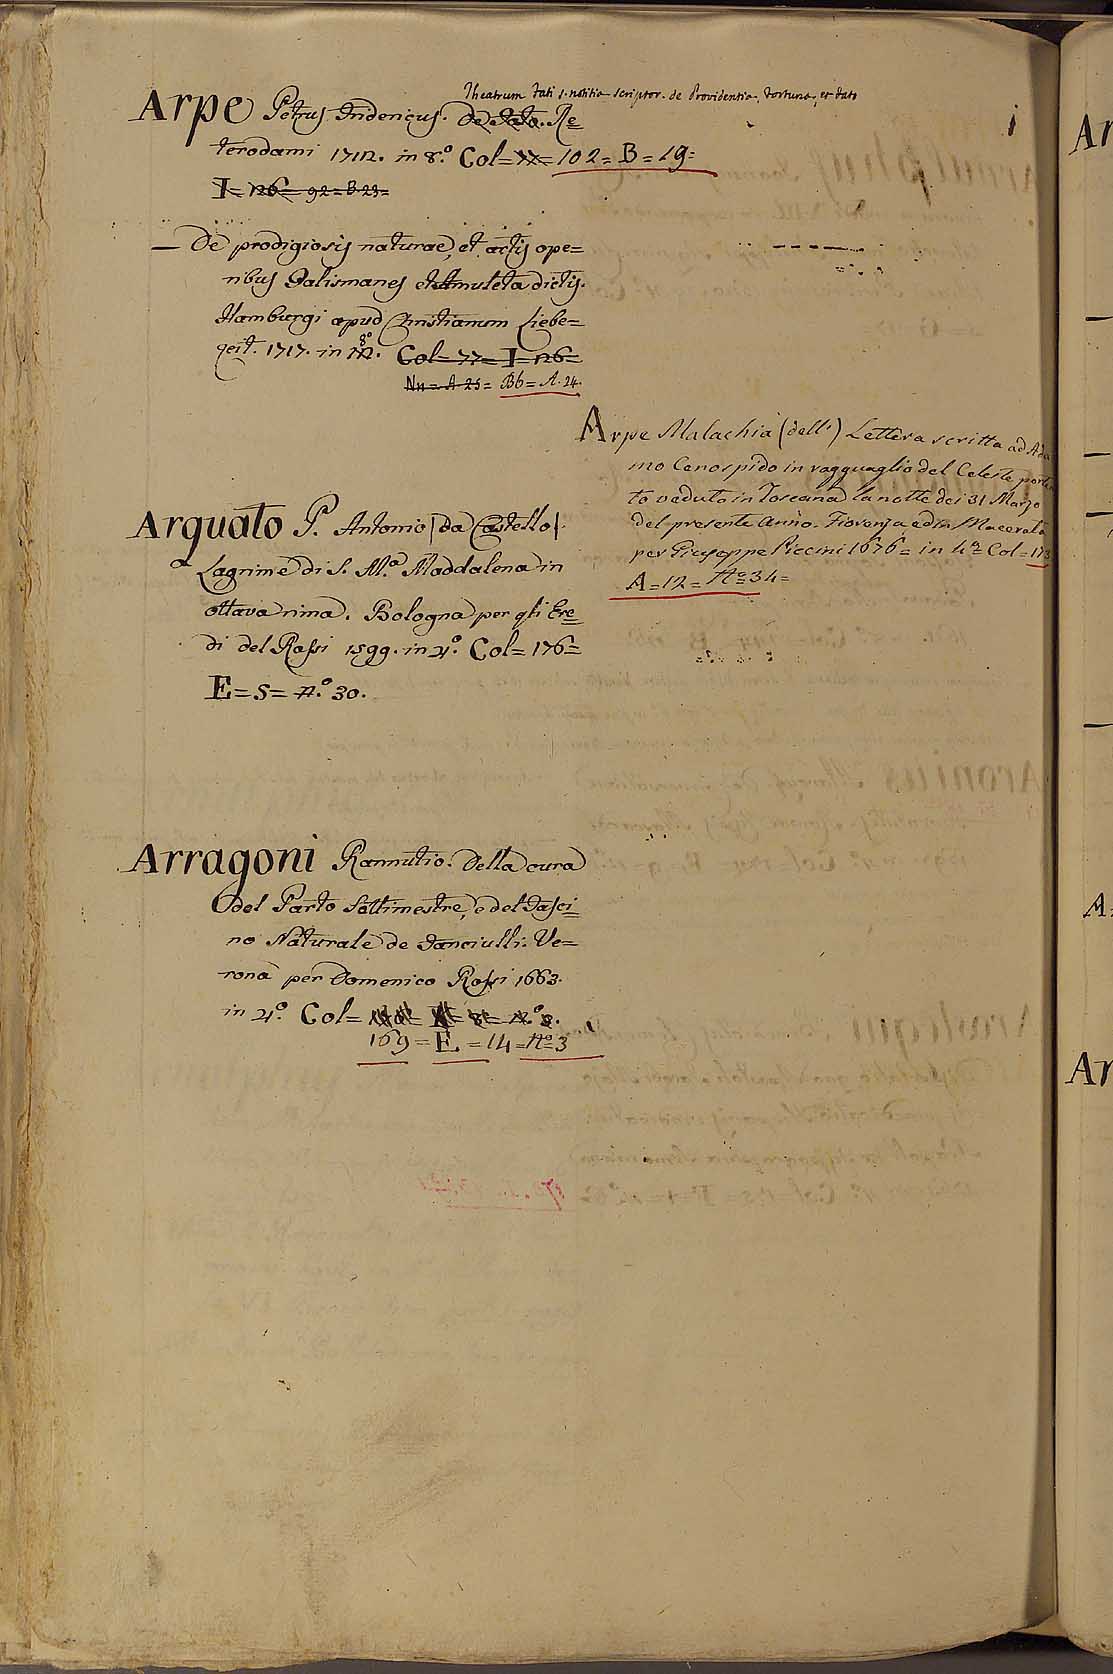 Theatrum Fati s. notitia scriptor. de Providentia, Fortuna, et Fato
Arpe Petrus Fridericus. De Fato. Ro=
terodami 1712. in 8.º Col= 77= 102= B= 19=
I= 126= 92= B. 23=
— De prodigiosis naturae, et artis ope=
ribus Talismanes et Amuleta dictis.
Hamburgi apud Christianum Liebe=
zeit. 1717. in 12. 8º Col= 77= I= 126=
Nn= A 25= Bb= A. 24.
Arpe Malachia (dell') Lettera scritta ad Ada
mo Cenospido in ragguaglio del Celeste porten
to veduto in Toscana la notte dei 31 Marzo
del presente Anno. Fiorenza ed in Macerata
per Giuseppe Piccini 1676= in 4º= Col= 173
A= 12= Nº= 34=
Arquato P. Antonio (da Castello).
Lagrime di S. M.ª Maddalena in
ottava rima. Bologna per gli Ere=
di del Rossi 1599. in 4.º Col= 176=
E= S= N.º 30.
Arragoni Rannutio. Della cura
del Parto Settimestre, e del Fasci=
no Naturale de Fanciulli. Ve=
rona per Domenico Rossi 1663.
in 4º. Col=
169= E= 14= Nº= 3
Ar
A
Ar